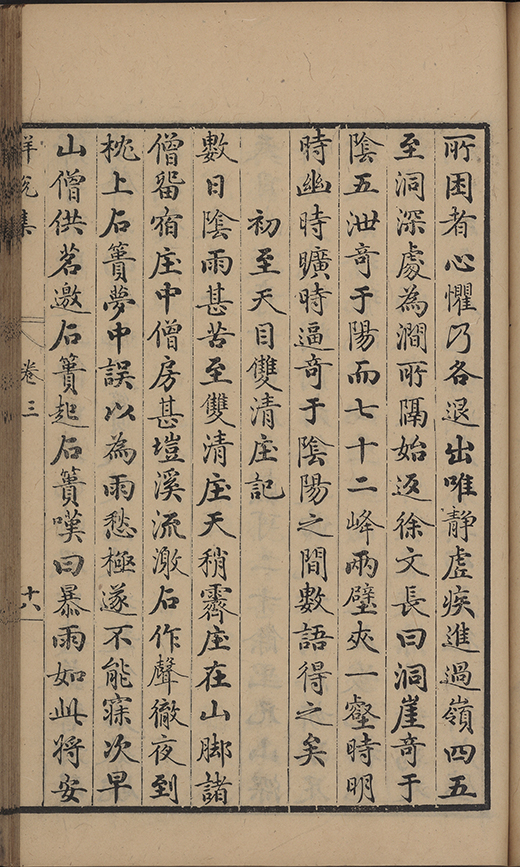 所困者心懼乃各退出唯靜虛疾進過嶺四五
至洞深處為澗所隔始返徐文長曰洞崖奇于
陰五泄奇于陽而七十二峰兩壁夾一壑時明
時幽時曠時逼奇于陰陽之間數語得之矣
初至天目雙清庄記
數日陰雨甚苦至雙清庄天稍霽庄在山脚諸
僧留宿庄中僧房甚塏溪流激石作聲徹夜到
枕上石簣夢中誤以為雨愁極遂不能寐次早
山僧供茗邀石簣起石簣嘆曰暴雨如此將安
卷三
十六